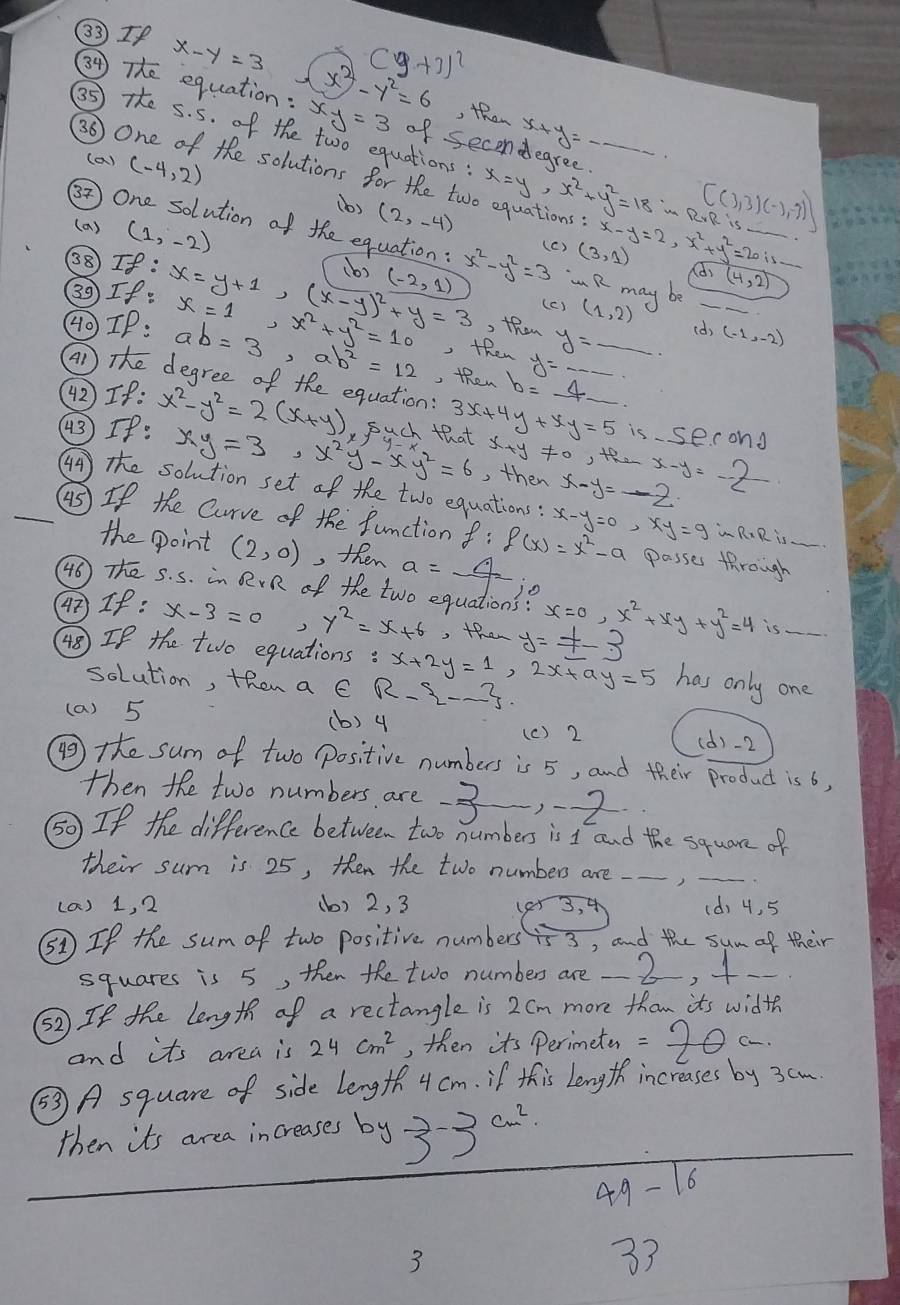 (33) If x-y=3 , x²-y²=6 , then x+y= ------ .
(y+3)²
(34) The equation: xy=3 of secendegree.
(35) The s.s. of the two equations: x=y , x²+y²=18 in R×R is ---- .
{(3,3)(-3,-3)}
(36) One of the solutions for the two equations: x-y=2, x²+y²=20 is ---
(a) (-4,2) (b) (2,-4) (c) (3,1) (d) (4,2)
(37) One solution of the equation: x²-y²=3 in R may be ----
(a) (1,-2) (b) (-2,1) (c) (1,2) (d) (-1,-2)
(38) If: x=y+1 , (x-y)²+y=3 , then y= ---- .
(39) If: x=1 , x²+y²=10 , then y= ---- .
(40) If: ab=3 , ab²=12 , then b= 4 .
(41) The degree of the equation: 3x+4y+xy=5 is second
(42) If: x²-y²=2(x+y) , such that x+y≠0 , then x-y= 2
(43) If: xy=3 , x²y-xy²=6 , then x-y= 2 .
(44) The solution set of the two equations: x-y=0 , xy=9 in R×R is --- .
(45) If the Curve of the function f: f(x)=x²-a passes through
the point (2,0) , then a= 4 .
(46) The s.s. in R×R of the two equations: x=0 , x²+xy+y²=4 is ---
(47) If: x-3=0 , y²=x+6 , then y= ± 3
(48) If the two equations: x+2y=1 , 2x+ay=5 has only one
Solution , then a ∈ R-{---}.
(a) 5 (b) 4 (c) 2 (d) -2
(49) The sum of two Positive numbers is 5 , and their product is 6 ,
then the two numbers are 3 , 2 .
(50) If the difference between two numbers is 1 and the square of
their sum is 25 , then the two numbers are --- , ---- .
(a) 1,2 (b) 2,3 (c) 3,4 (d) 4,5
(51) If the sum of two positive numbers is 3 , and the sum of their
squares is 5 , then the two numbers are 2 , 1 .
(52) If the length of a rectangle is 2 cm more than its width
and its area is 24 cm² , then its Perimeter = 20 cm.
(53) A square of side length 4 cm. if this length increases by 3 cm.
then its area increases by 33 cm².
49-16
33
3